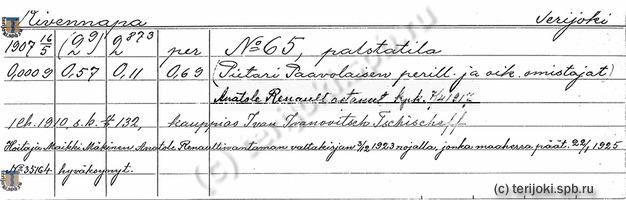 Kivennapa Terijoki
1907 16/5 (29) 2873 per No 65, palstatila
0,0009 0,57 0,11 0,69 (Pietari Paavolaisen perill. ja oik. omistajat)
Anatole Renault ostanut kpk. 7/4 1917
1 eh. 1910, s. k. # 132, kauppias Ivan Ivanovitsch Tschischeff
Hoitaja Maikki Mäkinen Anatole Renaultin antaman valtakirjan 3/2 1923 nojalla, jonka maaherra päät. 22/1 1925
No 35164 hyväksynyt.
(c) terijoki.spb.ru
(c) terijoki.spb.ru